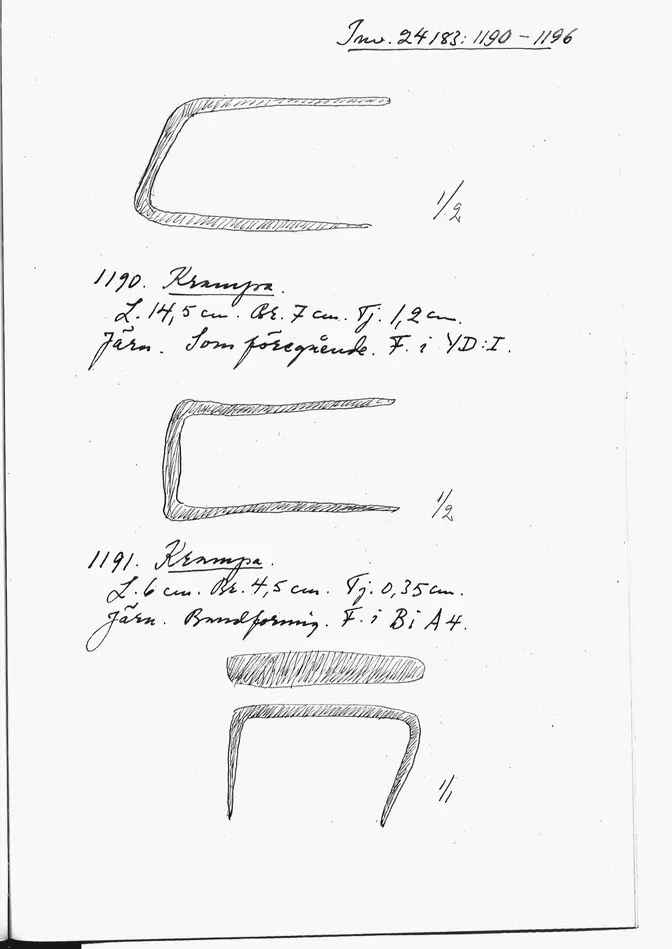 Inv. 24183: 1190 – 1196
1/2
1190. Krampa.
L. 14,5 cm. Br. 7 cm. Tj. 1,2 cm.
Järn. Som föregående. F. i YD:I.
1/2
1191. Krampa.
L. 6 cm. Br. 4,5 cm. Tj. 0,35 cm.
Järn. Bandformig. F. i Bi A4.
1/1